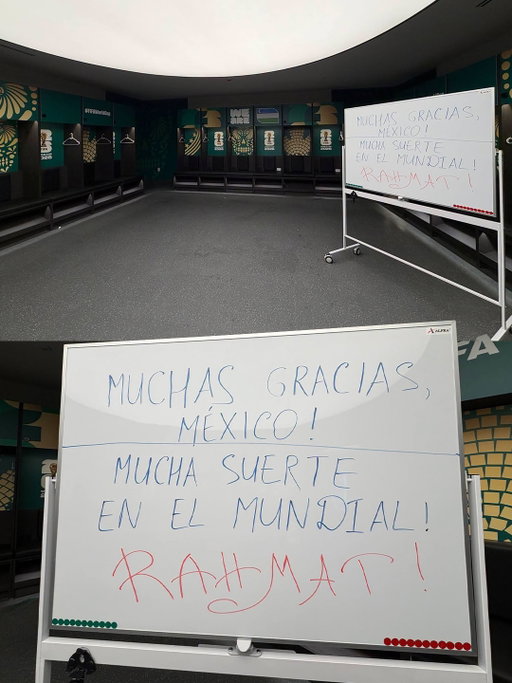 MUCHAS GRACIAS,
MÉXICO!
MUCHA SUERTE
EN EL MUNDIAL!
RAHMAT!
MUCHAS GRACIAS,
MÉXICO!
MUCHA SUERTE
EN EL MUNDIAL!
RAHMAT!